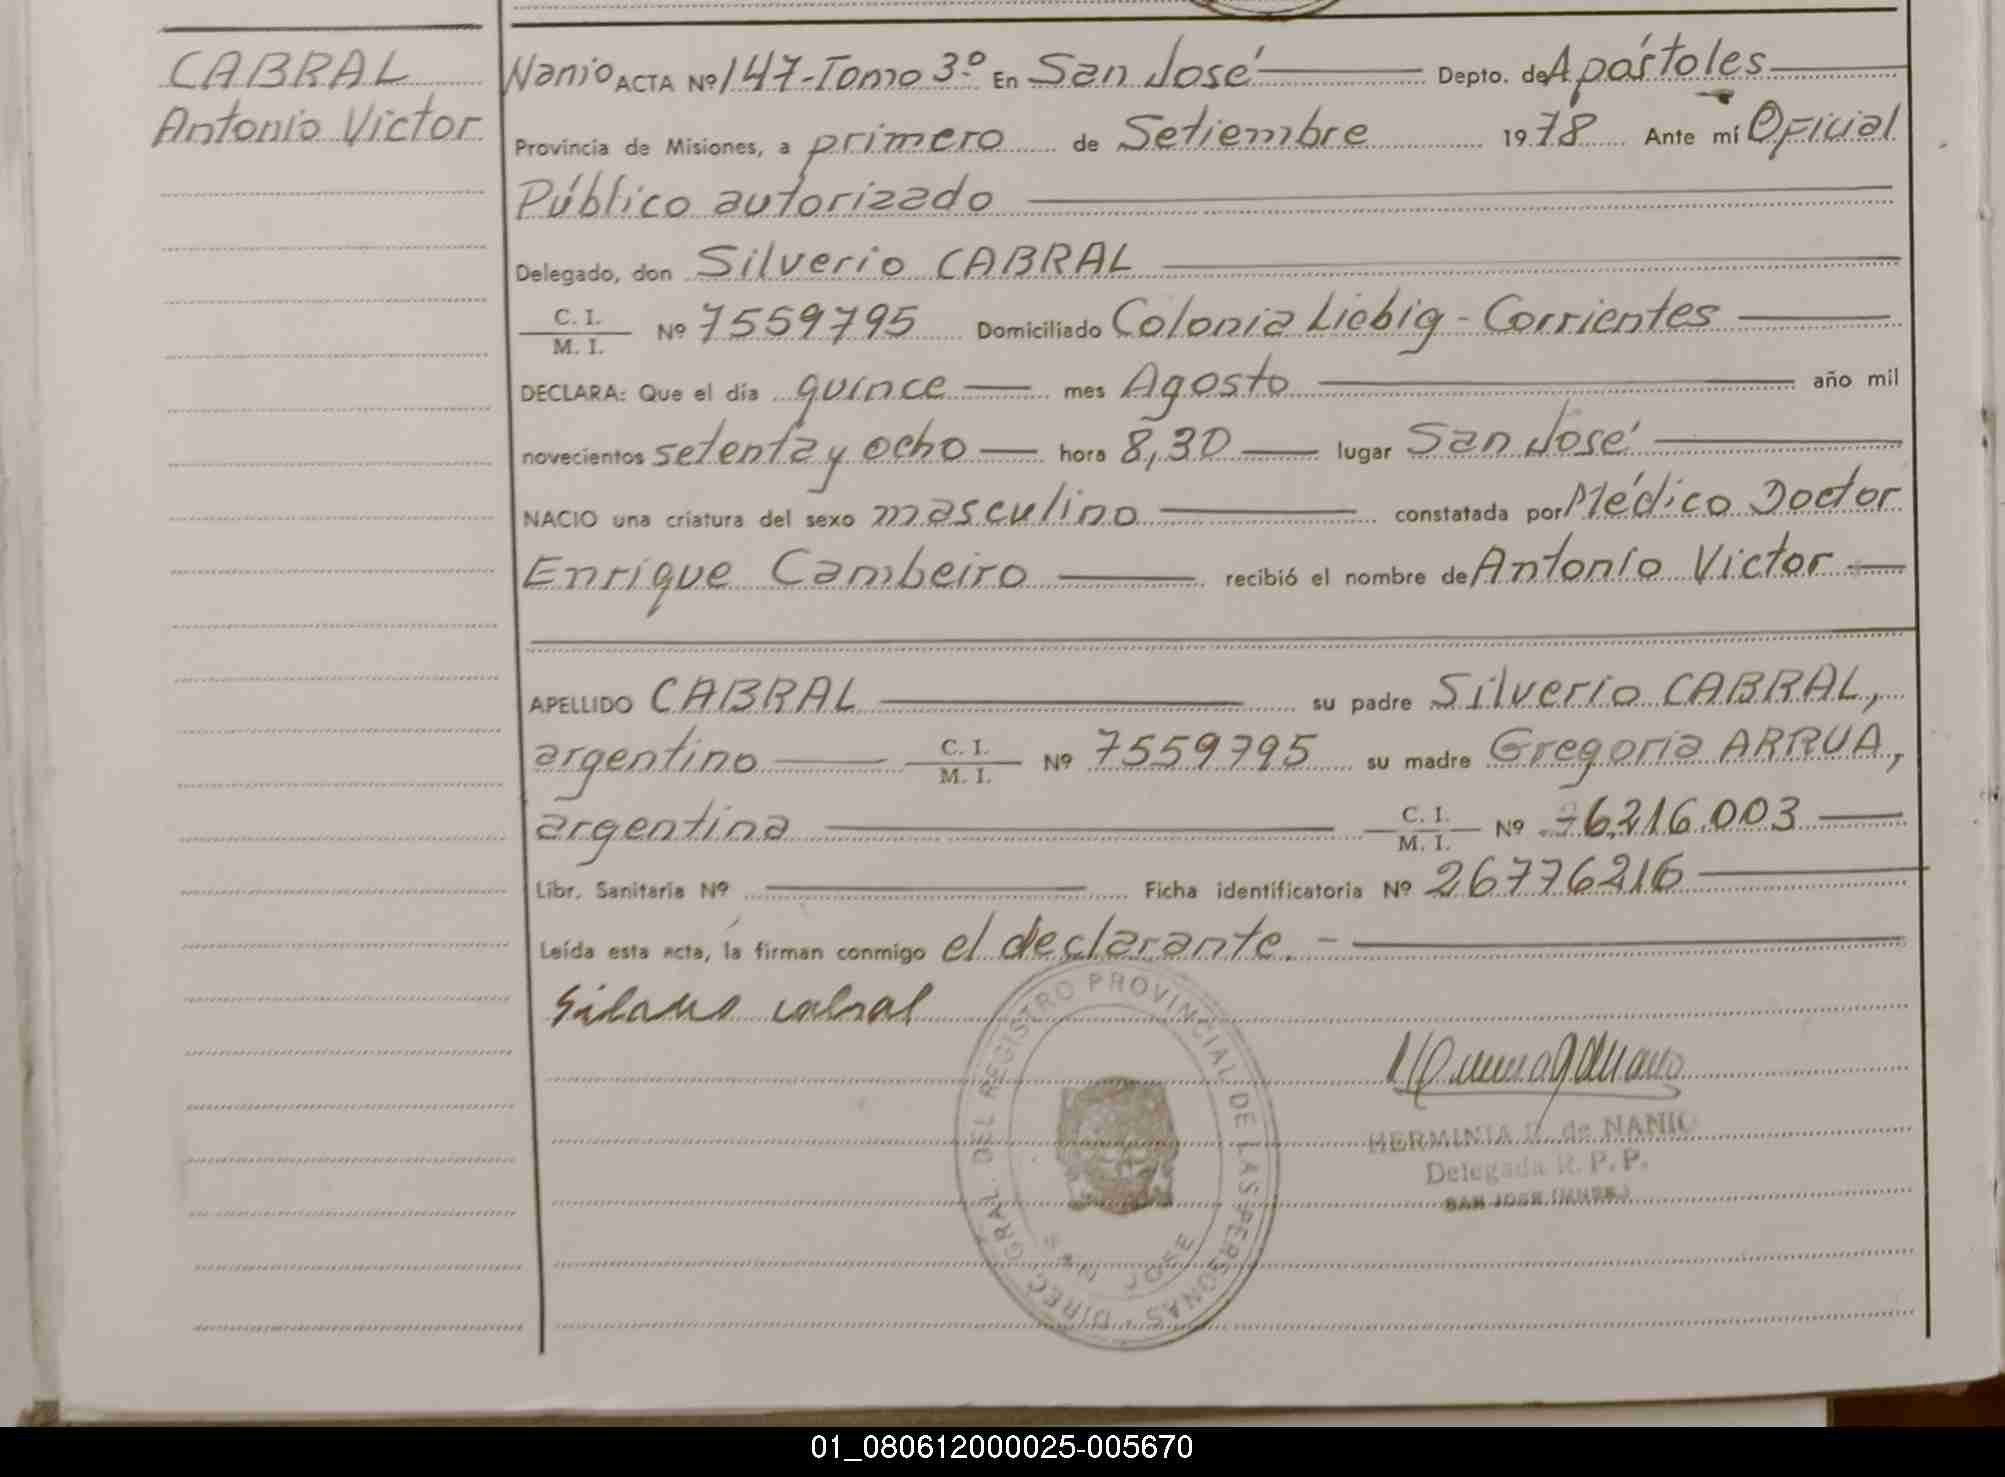 CABRAL
Antonio Victor
Nanio ACTA Nº 147-Tomo 3.º En San José Depto. de Apóstoles
Provincia de Misiones, a primero de Setiembre 1978 Ante mí Oficial
Público autorizado
Delegado, don Silverio CABRAL
C. I.
M. I. Nº 7559795 Domiciliado Colonia Liebig - Corrientes
DECLARA: Que el día quince mes Agosto año mil
novecientos setenta y ocho hora 8,30 lugar San José
NACIO una criatura del sexo masculino constatada por Médico Doctor
Enrique Cambeiro recibió el nombre de Antonio Victor
APELLIDO CABRAL su padre Silverio CABRAL,
argentino C. I. M. I. Nº 7559795 su madre Gregoria ARRUA,
argentina C. I. M. I. Nº 6.216.003
Libr. Sanitaria Nº Ficha identificatoria Nº 26776216
Leída esta acta, la firman conmigo el declarante. -
cabral
DIREC. GRAL. DEL REGISTRO PROVINCIAL DE LAS PERSONAS
SAN JOSE
HERMINIA de NANIO
Delegada R. P. P.
SAN JOSE (MNES.)
01_080612000025-005670